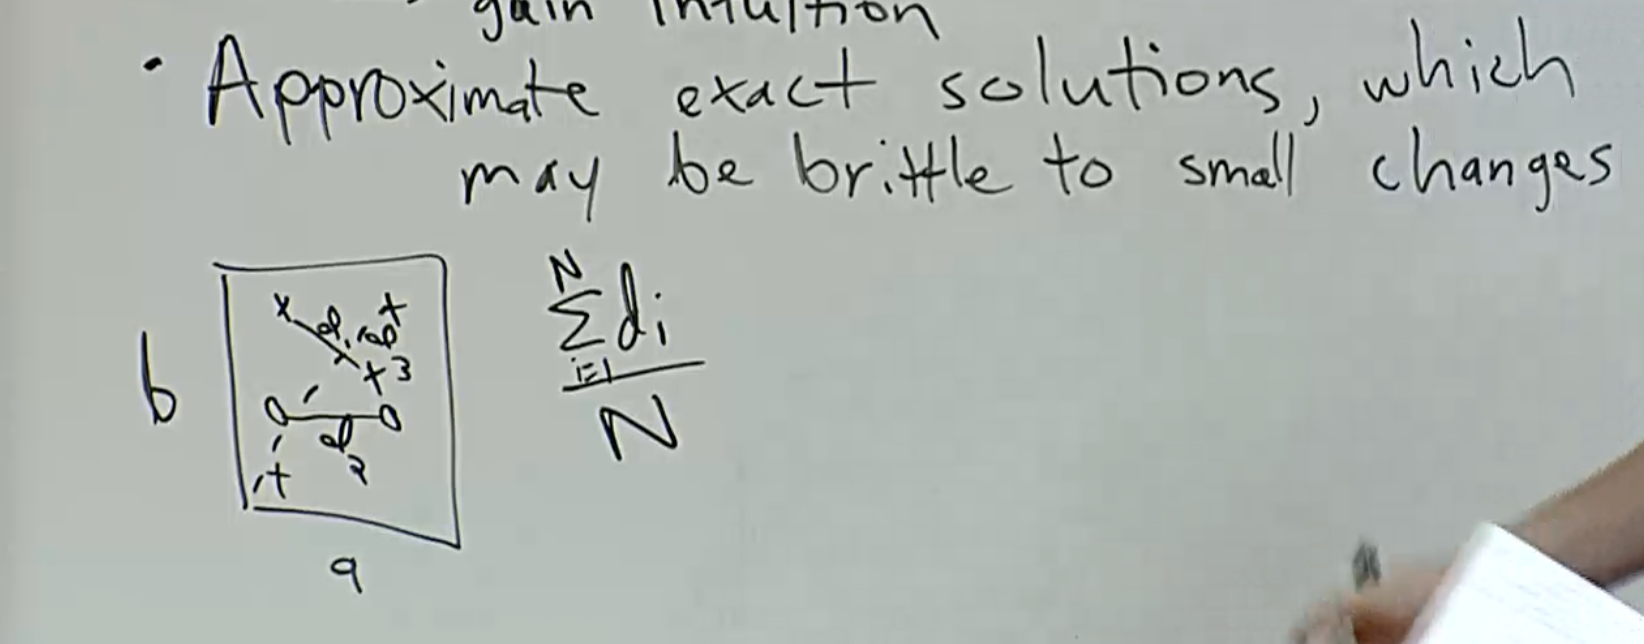 gain intuition
• Approximate exact solutions, which
may be brittle to small changes
b
d
3
d2
a
N
∑ di
i=1
N